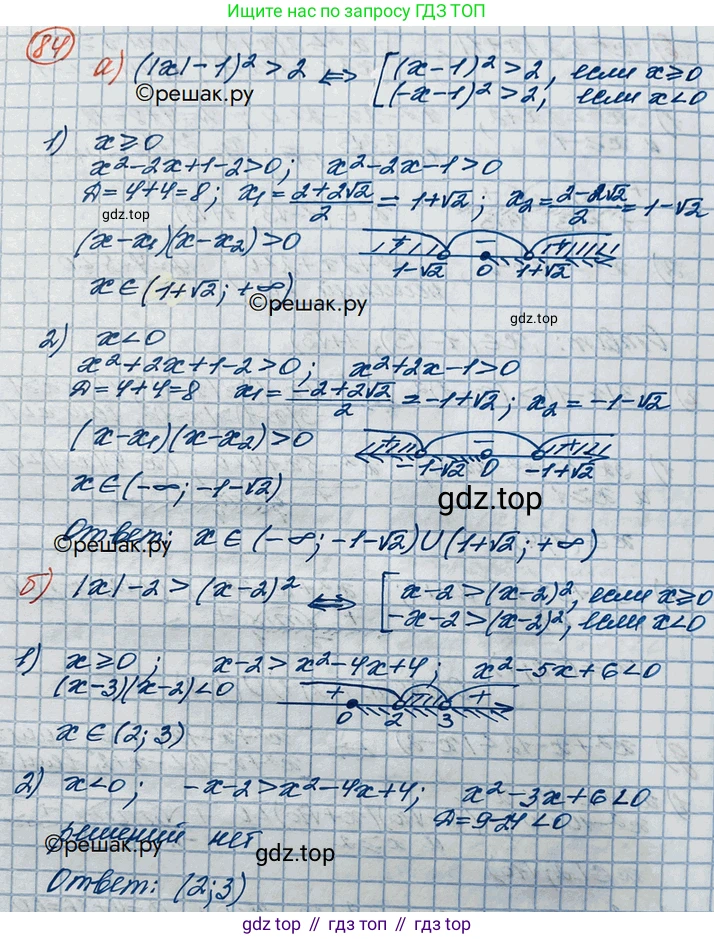 Ищите нас по запросу ГДЗ ТОП
84
а) (|x|-1)² > 2 ⇔ [ (x-1)² > 2, если x ≥ 0
(-x-1)² > 2, если x < 0
©решак.ру
1) x ≥ 0
x² - 2x + 1 - 2 > 0; x² - 2x - 1 > 0
Д = 4 + 4 = 8; x₁ = (2+2√2)/2 = 1+√2; x₂ = (2-2√2)/2 = 1-√2
gdz.top
(x-x₁)(x-x₂) > 0 + − + 1-√2 0 1+√2
x ∈ (1+√2; +∞)
©решак.ру
gdz.top
2) x < 0
x² + 2x + 1 - 2 > 0; x² + 2x - 1 > 0
Д = 4 + 4 = 8 x₁ = (-2+2√2)/2 = -1+√2; x₂ = -1-√2
(x-x₁)(x-x₂) > 0 + − + -1-√2 0 -1+√2
x ∈ (-∞; -1-√2)
gdz.top
Ответ: x ∈ (-∞; -1-√2) ∪ (1+√2; +∞)
©решак.ру
б) |x| - 2 > (x-2)² ⇔ [ x-2 > (x-2)², если x ≥ 0
-x-2 > (x-2)², если x < 0
1) x ≥ 0; x-2 > x² - 4x + 4; x² - 5x + 6 < 0
(x-3)(x-2) < 0 + 0 2 3 +
x ∈ (2; 3)
2) x < 0; -x-2 > x² - 4x + 4; x² - 3x + 6 < 0
Д = 9 - 24 < 0
решений нет
©решак.ру
gdz.top
Ответ: (2; 3)
gdz top // гдз топ // gdz.top // гдз.топ